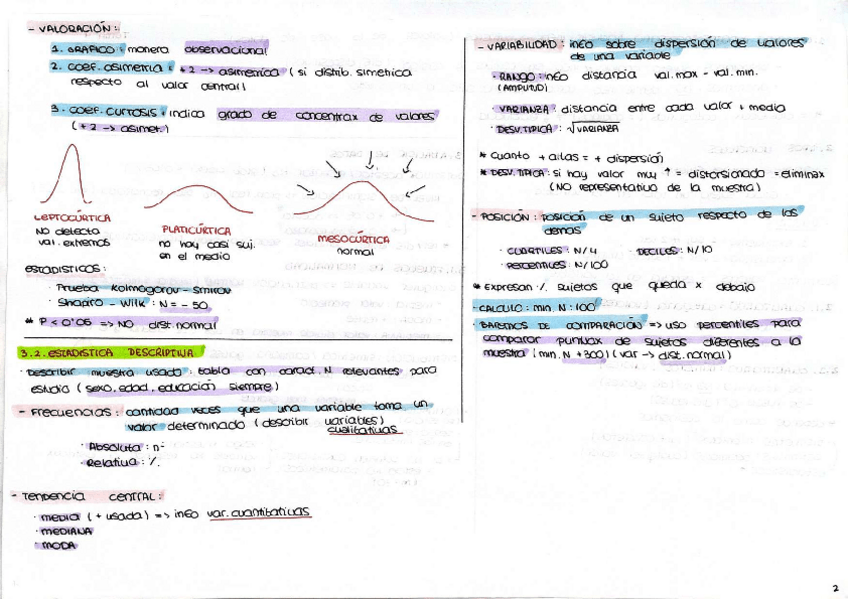 - VALORACIÓN:
1. GRAFICO: manera observacional
2. COEF. ASIMETRIA: + 2 -> asimetrica (si distrib. simetrica
respecto al valor central)
3. COEF. CURTOSIS: indica grado de concentrax de valores
(+ 2 -> asimet.)
LEPTOCÚRTICA
NO detecta
val. extremos
PLATICÚRTICA
no hay casi suj.
en el medio
MESOCÚRTICA
normal
ESTADISTICOS:
· Prueba Kolmogorov - Smirov
· Shapiro - Wilk: N = - 50
* P < 0'05 => NO dist. normal
3.2. ESTADISTICA DESCRIPTIVA
· Describir muestra usada: tabla con caract. N relevantes para
estudio (sexo, edad, educación siempre)
- Frecuencias: cantidad veces que una variable toma un
valor determinado (describir variables)
cualitativas
· Absoluta: nº
· Relativa: %
- Tendencia CENTRAL:
· MEDIA (+ usada) => info var. cuantitativas
· MEDIANA
· MODA
- VARIABILIDAD: info sobre dispersión de valores
de una variable
· RANGO: info distancia val. max - val. min.
(AMPLITUD)
· VARIANZA: distancia entre cada valor + media
· DESV. TIPICA: √VARIANZA
* Cuanto + altas = + dispersión
* DESV. TIPICA: si hay valor muy ↑ = distorsionado = eliminax
(NO representativo de la muestra)
- POSICIÓN: posición de un sujeto respecto de los
demas
· CUARTILES: N/4 · DECILES: N/10
· PERCENTILES: N/100
* Expresan % sujetos que queda x debajo
- CALCULO: min. N: 100
· BAREMOS DE COMPARACIÓN => uso percentiles para
comparar puntuax de sujetos diferentes a la
muestra (min. N +300) (var -> dist. normal)
2